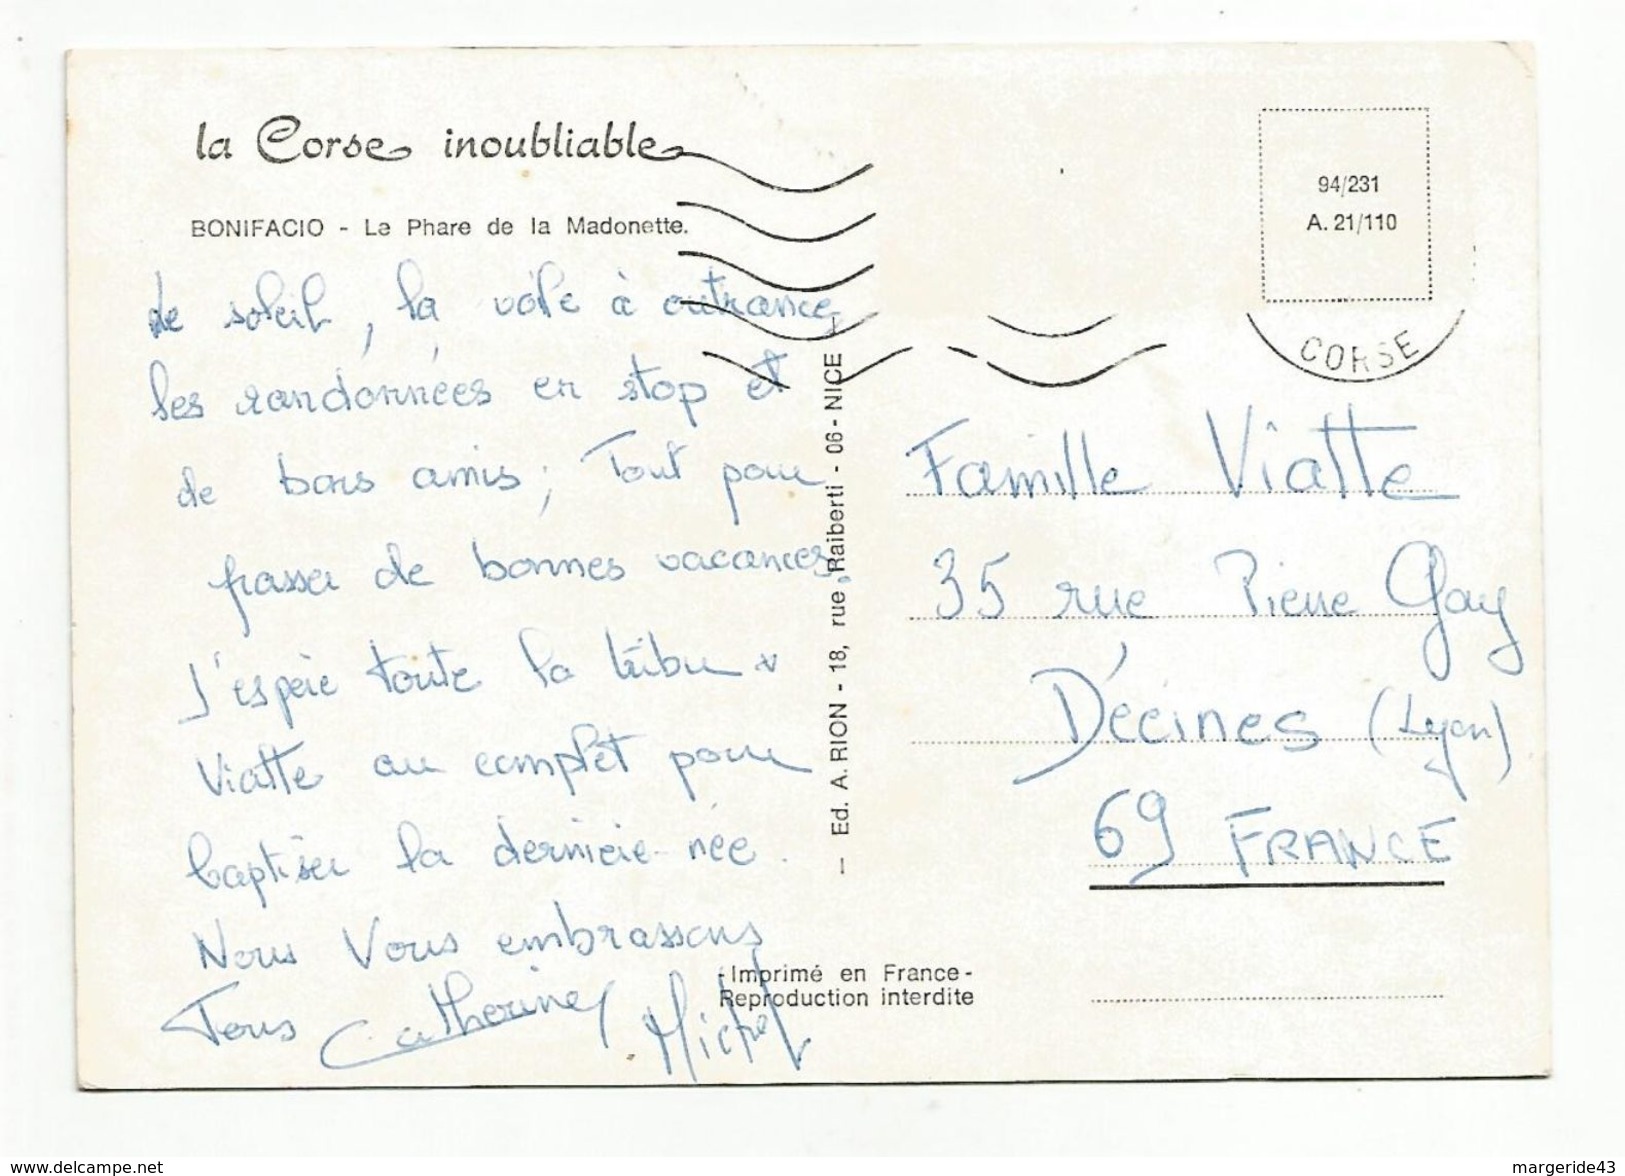 la Corse inoubliable
BONIFACIO - Le Phare de la Madonette.
de soleil, la voile à outrance,
les randonnées en stop et
de bons amis ; Tout pour
passer de bonnes vacances.
J'espère toute la tribu
Viatte au complet pour
baptiser la dernière-née.
Nous Vous embrassons
Tous Catherine Michel
— Ed. A. RION - 18, rue Raiberti - 06 - NICE —
-Imprimé en France-
Reproduction interdite
94/231
A. 21/110
CORSE
Famille Viatte
35 rue Pierre Gay
Décines (Lyon)
69 FRANCE
www.delcampe.net
margeride43